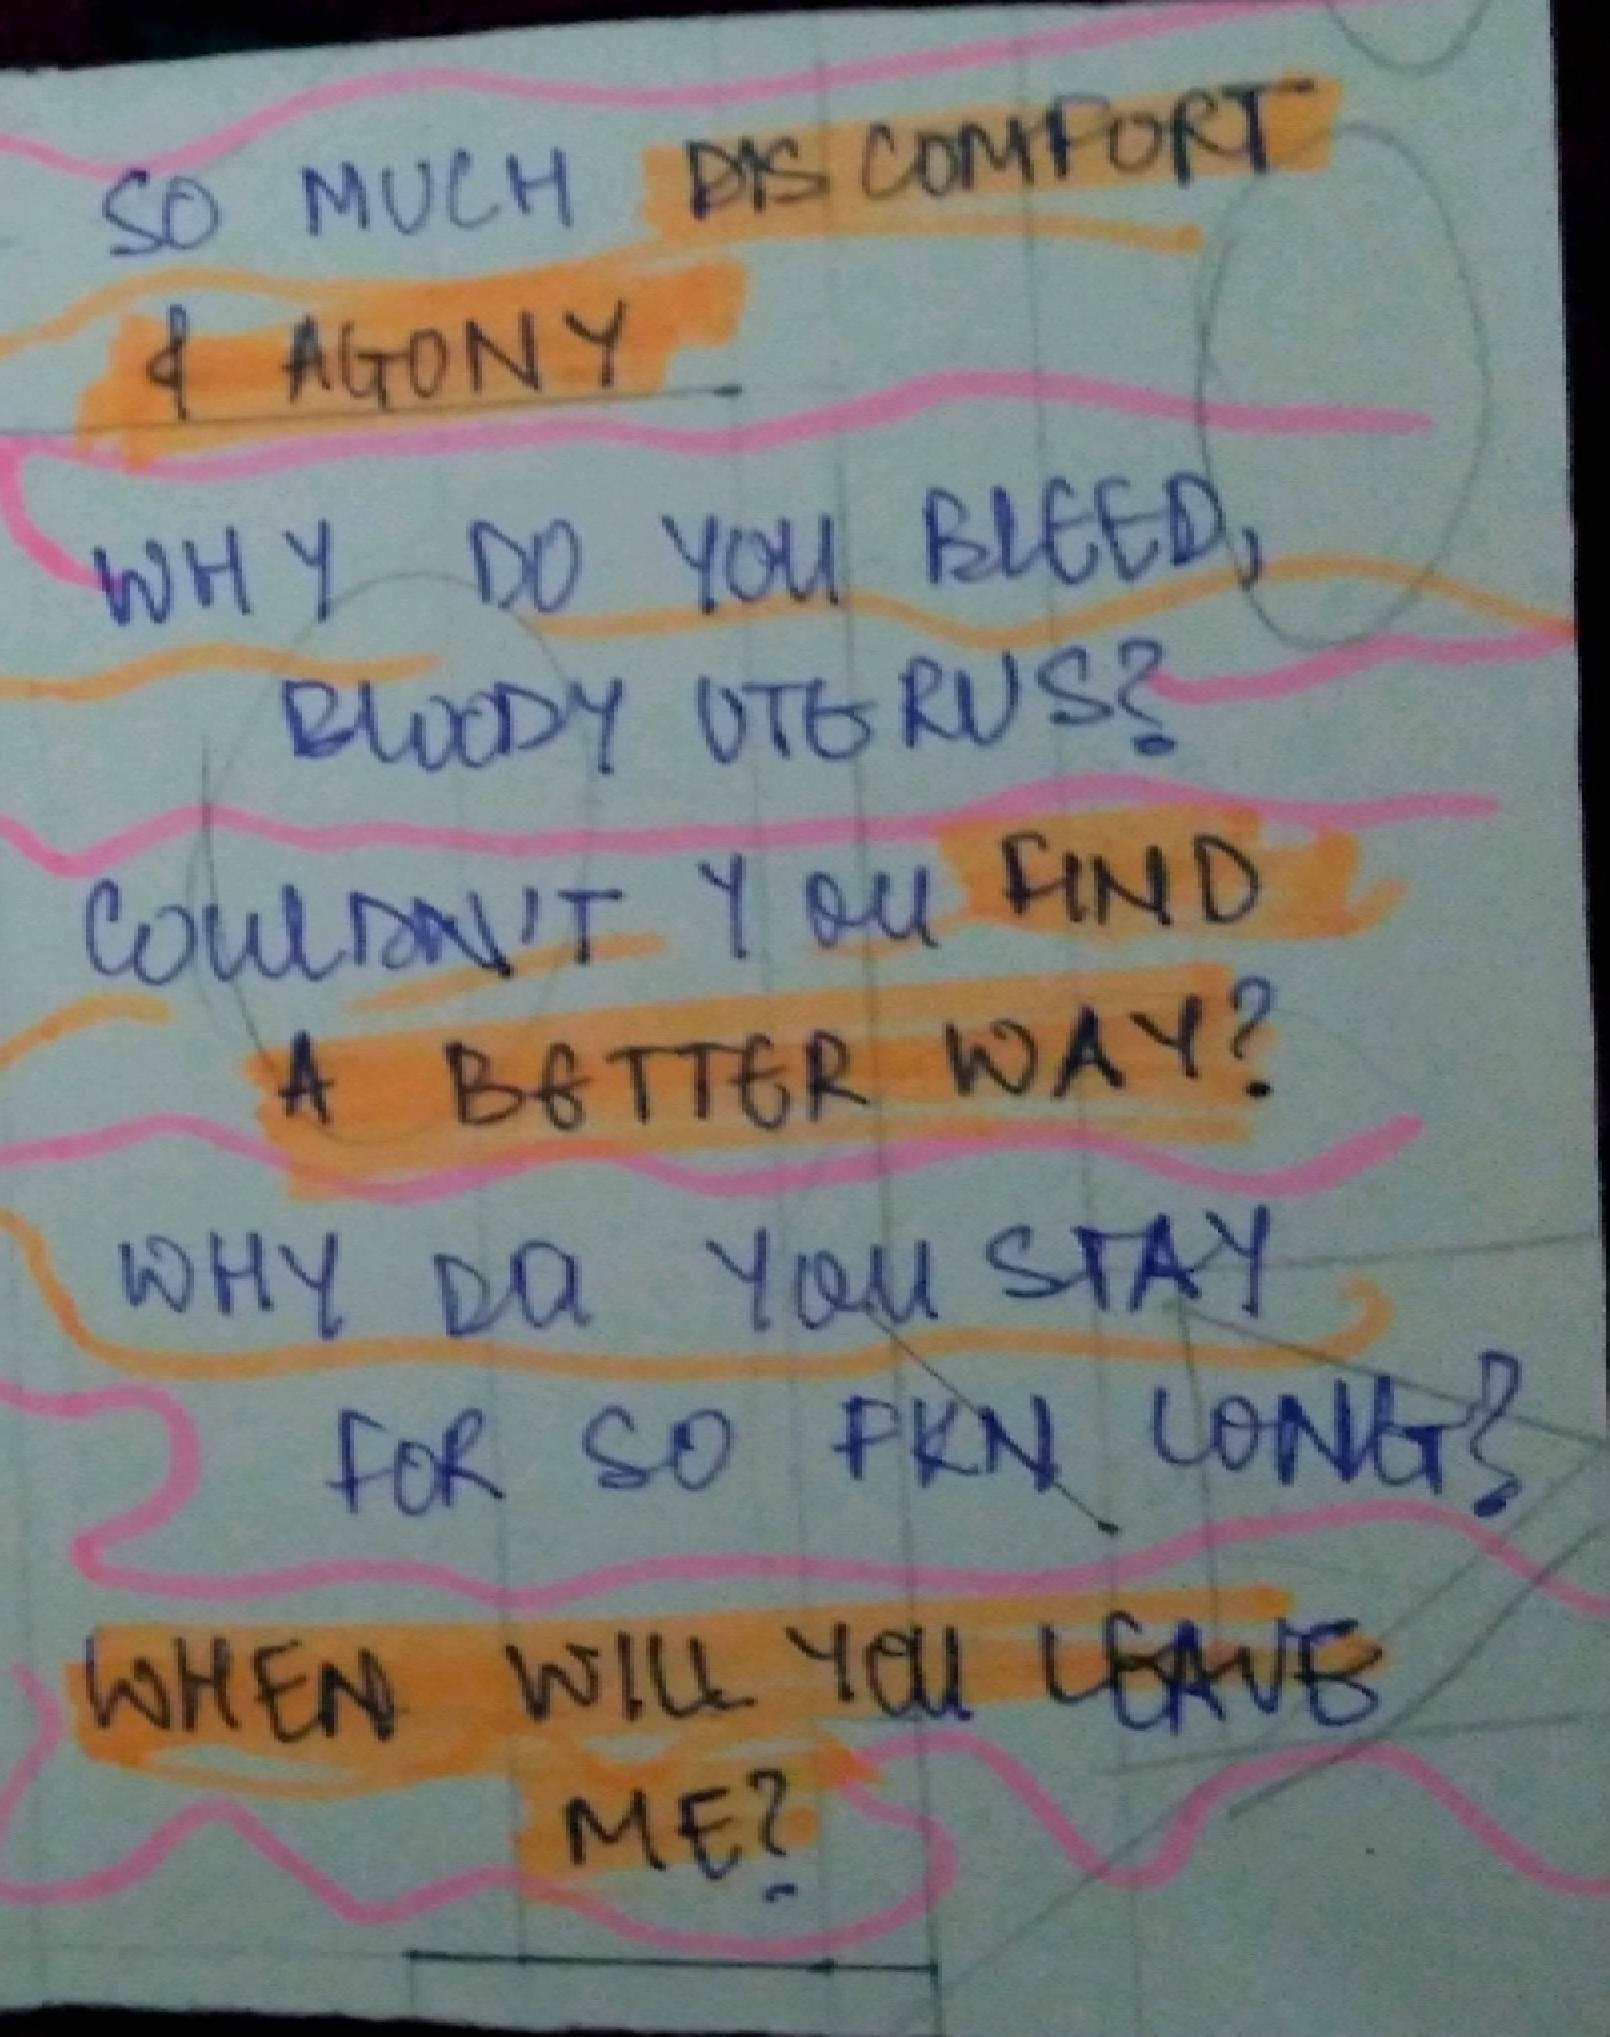 SO MUCH DISCOMFORT
& AGONY
WHY DO YOU BLEED,
BLOODY UTERUS?
COULDN'T YOU FIND
A BETTER WAY?
WHY DO YOU STAY
FOR SO FKN LONG?
WHEN WILL YOU LEAVE
ME?